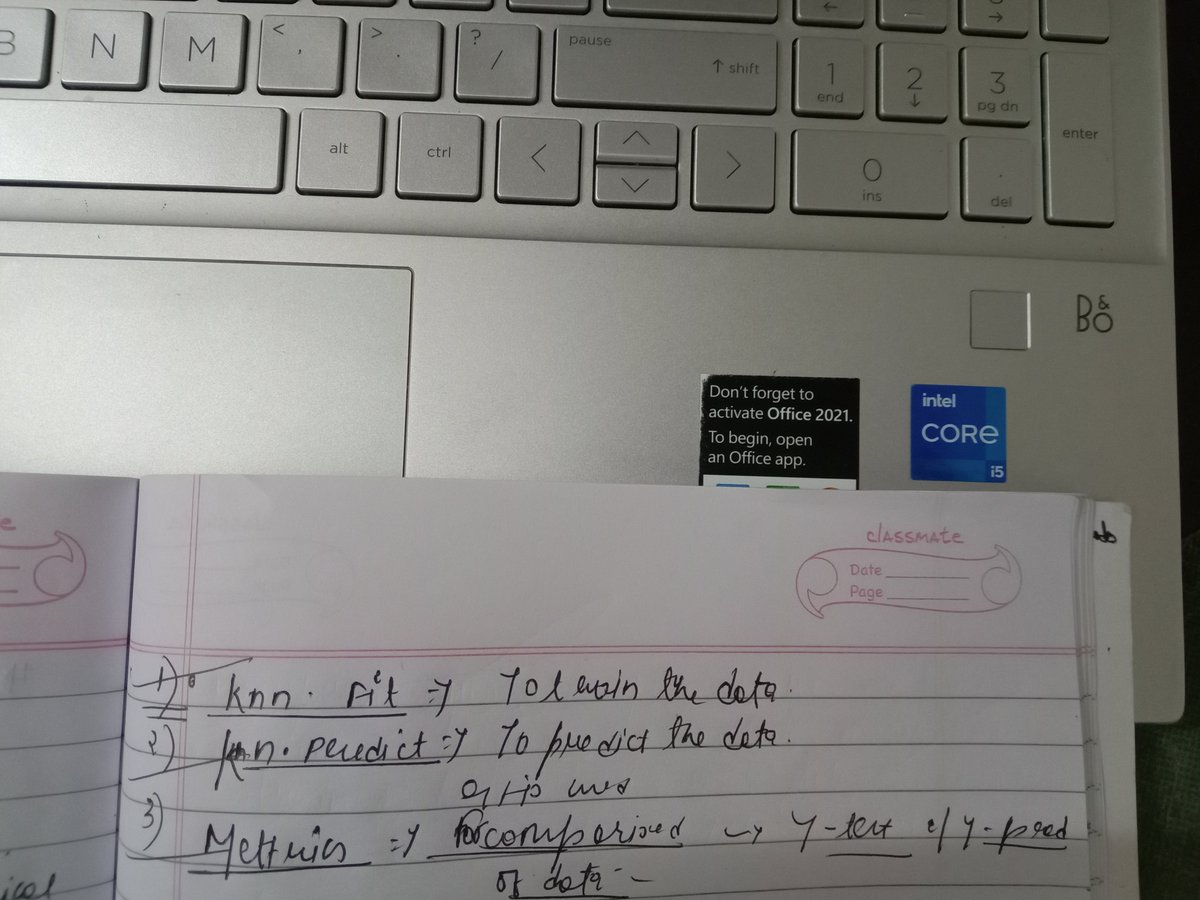 B N M < , > . ? / pause ↑ shift 1 end 2 ↓ 3 pg dn enter
alt ctrl < > 0 ins . del
B&O
Don't forget to
activate Office 2021.
To begin, open
an Office app.
intel
CORe
i5
classmate
Date
Page
1) knn. Fit => To train the data.
2) knn. Predict => To predict the data.
It is used
3) Mettrics => For comparised → y-test & y-pred
of data